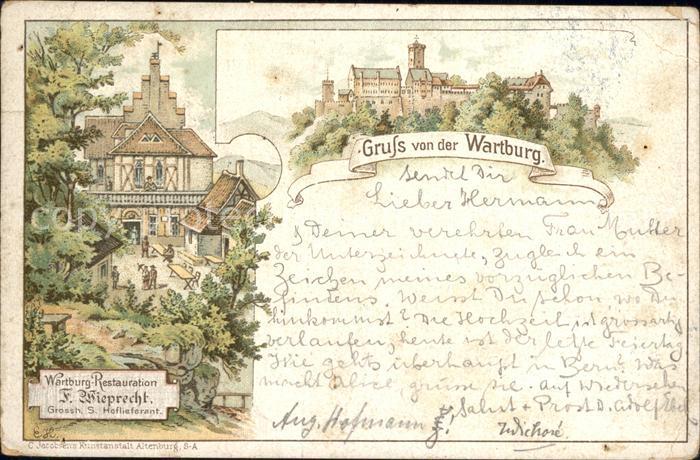 Gruſs von der Wartburg.
sendet Dir
Lieber Hermann
& Deiner verehrten Frau Mutter
der Unterzeichnete, zugleich ein
Zeichen meines vorzüglichen Be-
findens. Weisst Du schon wo Du
hinkommst? Die Hochzeit ist grossartig
verlaufen, heute ist der letzte Feiertag
Wie gehts überhaupt in Bern? Was
macht Alice, grüsse sie. Auf Wiedersehen
Salut + Prost D. Adolf
Aug. Hofmann
Wartburg-Restauration
F. Wieprecht.
Grossh. S. Hoflieferant.
C. Jacobsens Kunstanstalt Altenburg, S-A